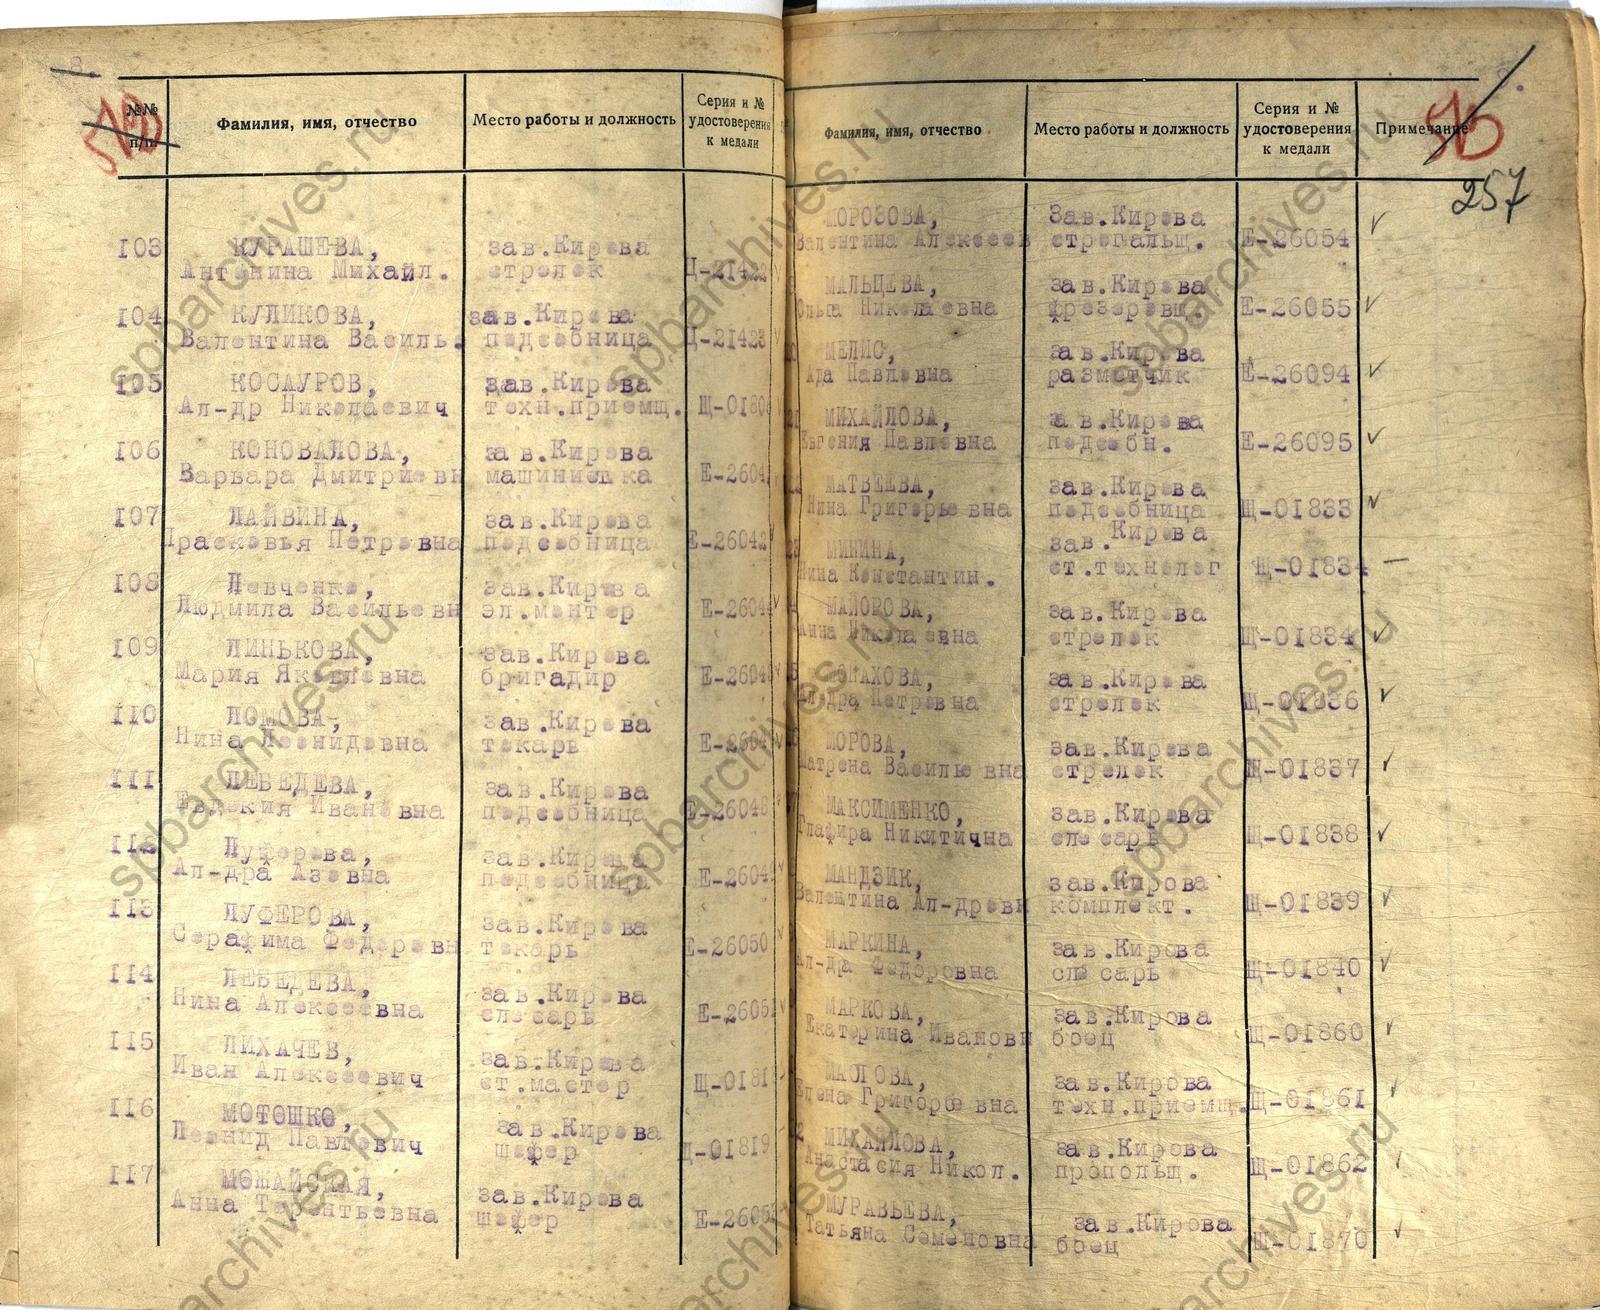 8.
№№ п/п
Фамилия, имя, отчество
Место работы и должность
Серия и №
удостоверения
к медали
103 КУРАШЕВА, зав.Кирова
Антонина Михайл. стрелок
104 КУЛИКОВА, зав.Кирова
Валентина Василь. подсобница Щ-21423
105 КОСАУРОВ, зав.Кирова
Ал-др Николаевич техн.приемщ.
106 КОНОВАЛОВА, зав.Кирова
Варвара Дмитриевн машинистка
107 ЛАЙВИНА, зав.Кирова
Прасковья Петровна подсобница Е-26042
108 Левченко, зав.Кирова
Людмила Васильевн эл.монтер
109 ЛИНЬКОВА, зав.Кирова
Мария Яковлевна бригадир
110 ЛОМОВА, зав.Кирова
Нина Леонидовна токарь
111 ЛЕБЕДЕВА, зав.Кирова
Евдокия Ивановна подсобница Е-26048
112 Луферова, зав.Кирова
Ал-дра Азовна подсобница
113 ЛУФЕРОВА, зав.Кирова
Серафима Федоровн токарь Е-26050
114 ЛЕБЕДЕВА, зав.Кирова
Нина Алексеевна слесарь
115 ЛИХАЧЕВ, зав.Кирова
Иван Алексеевич ст.мастер
116 МОТОШКО, зав.Кирова
Леонид Павлович шофер Щ-01819
117 МОЖАЙСКАЯ, зав.Кирова
Анна Терентьевна шофер
Фамилия, имя, отчество
Место работы и должность
Серия и №
удостоверения
к медали
Примечание
257
МОРОЗОВА, Зав.Кирова
Валентина Алексеев строгальщ. Е-26054
МАЛЬЦЕВА, зав.Кирова
Ольга Николаевна фрезеровщ. Е-26055
МЕЛИС, зав.Кирова
Ада Павловна разметчик Е-26094
МИХАЙЛОВА, зав.Кирова
Евгения Павловна подсобн. Е-26095
МАТВЕЕВА, зав.Кирова
Нина Григорьевна подсобница Щ-01833
МИНИНА, зав.Кирова
Нина Константин. ст.технолог Щ-01834
МАЙОРОВА, зав.Кирова
Анна Николаевна стрелок Щ-01834
зав.Кирова
Ал-дра Петровна стрелок Щ-01836
МОРОВА, зав.Кирова
Матрена Васильевна стрелок Щ-01837
МАКСИМЕНКО, зав.Кирова
Глафира Никитична слесарь Щ-01838
МАНДЗИК, зав.Кирова
Валентина Ал-дровн комплект. Щ-01839
МАРКИНА, зав.Кирова
Ал-дра Федоровна слесарь Щ-01840
МАРКОВА, зав.Кирова
Екатерина Ивановн боец Щ-01860
МАСЛОВА, зав.Кирова
Елена Григорьевна техн.приемщ. Щ-01861
МИХАЙЛОВА, зав.Кирова
Анастасия Никол. пропольщ. Щ-01862
МУРАВЬЕВА, зав.Кирова
Татьяна Семеновна боец Щ-01870
spbarchives.ru